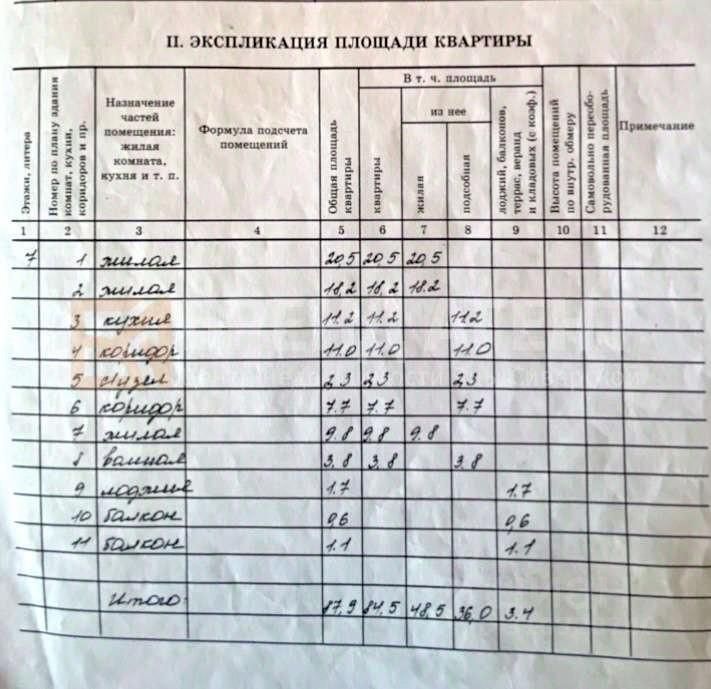 II. ЭКСПЛИКАЦИЯ ПЛОЩАДИ КВАРТИРЫ
Этажи, литера
Номер по плану здания комнат, кухни, коридоров и пр.
Назначение частей помещения: жилая комната, кухня и т. п.
Формула подсчета помещений
Общая площадь квартиры
В т. ч. площадь
квартиры
из нее
жилая
подсобная
лоджий, балконов, террас, веранд и кладовых (с коэф.)
Высота помещений по внутр. обмеру
Самовольно переоборудованная площадь
Примечание
1 2 3 4 5 6 7 8 9 10 11 12
7 1 жилая 20,5 20,5 20,5
2 жилая 18,2 18,2 18.2
3 кухня 11.2 11.2 11.2
4 коридор 11.0 11.0 11.0
5 с/узел 2.3 2.3 2.3
6 коридор 7.7 7.7 7.7
7 жилая 9.8 9.8 9.8
8 ванная 3,8 3,8 3.8
9 лоджия 1.7 1.7
10 балкон 0,6 0,6
11 балкон 1.1 1.1
Итого: 87,9 84,5 48,5 36,0 3.4